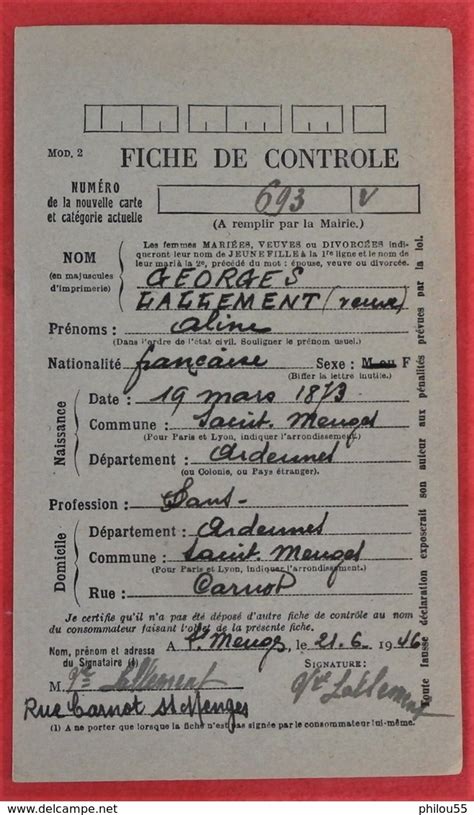 MOD. 2
FICHE DE CONTROLE
NUMÉRO
de la nouvelle carte
et catégorie actuelle
693 V
(A remplir par la Mairie.)
Les femmes MARIÉES, VEUVES ou DIVORCÉES indi-
queront leur nom de JEUNE FILLE à la 1re ligne et le nom de
leur mari à la 2e, précédé du mot : épouse, veuve ou divorcée.
NOM
(en majuscules
d'imprimerie)
GEORGES
LALLEMENT (veuve)
Prénoms : Aline
(Dans l'ordre de l'état civil. Souligner le prénom usuel.)
Nationalité française Sexe : M ou F
(Biffer la lettre inutile.)
Naissance
Date : 19 mars 1873
Commune : Saint. Menges
(Pour Paris et Lyon, indiquer l'arrondissement.)
Département : Ardennes
(ou Colonie, ou Pays étranger).
Profession : Sans-
Domicile
Département : Ardennes
Commune : Saint Menges
(Pour Paris et Lyon, indiquer l'arrondissement.)
Rue : Carnot
Je certifie qu'il n'a pas été déposé d'autre fiche de contrôle au nom
du consommateur faisant l'objet de la présente fiche.
A St Menges, le 21.6 1946
Nom, prénom et adresse
du Signataire (1)
SIGNATURE :
M. Vve Lallement
Vve Lallement
Rue Carnot St Menges
(1) A ne porter que lorsque la fiche n'est pas signée par le consommateur lui-même.
Toute fausse déclaration exposerait son auteur aux pénalités prévues par la loi.
www.delcampe.net
philou55